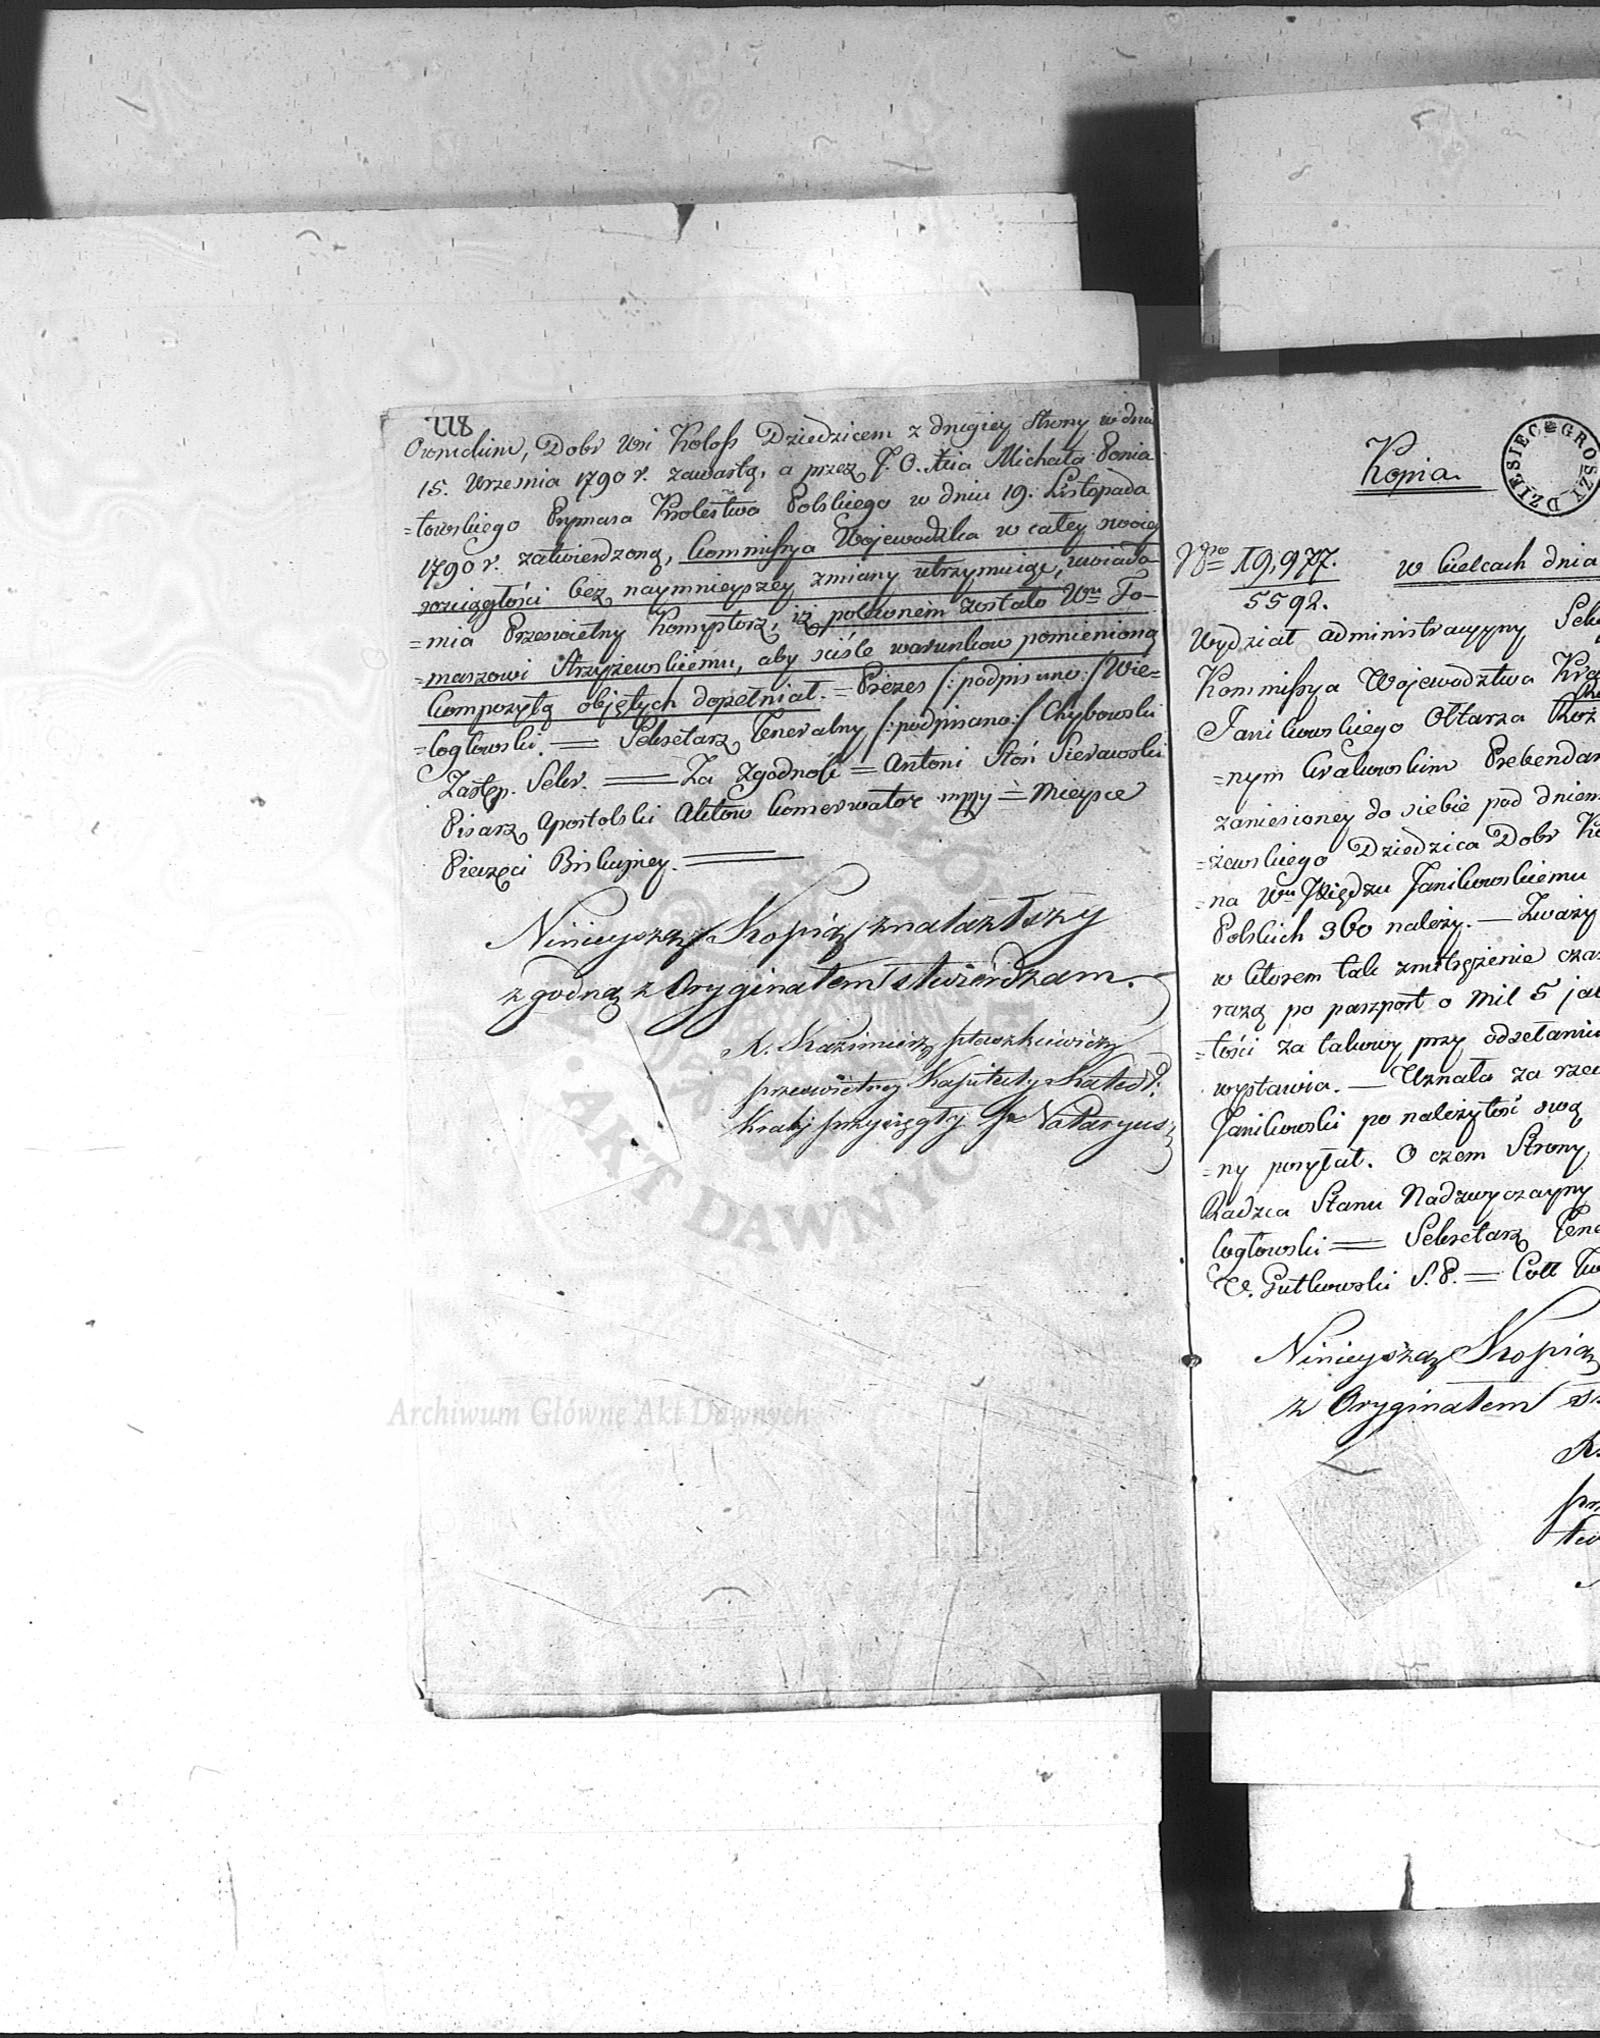 778
Dobr Wsi Koloss Dziedzicem z drugiey Strony w dniu
15. Września 1790 r. zawartą, a przez J. O. Xia Michała Ponia
=towskiego Prymasa Krolestwa Polskiego w dniu 19. Listopada
1790 r. zatwierdzoną, Kommissya Wojewodzka w całey swoiey
rozciągłości bez naymnieyszey zmiany utrzymuiąc, uwiada
=mia Przeswietny Konsystorz, iż poleconem zostało Wmu To-
=maszowi Strzyżewskiemu, aby ściśle warunkow pomienioną
Kompozytą objętych dopełniał. = Prezes /:podpisano:/ Wie-
=loglowski. = Sekretarz Generalny /:podpisano:/ Chybowski
Zastęp. Sekr. = Za Zgodność = Antoni Stoś Sierawski
Pisarz Apostolski Aktow Konserwator mpp = Mieysce
Pieczęci Biskupiey. =
Ninieyszą Kopią znalazłszy
zgodną z Oryginałem stwierdzam.
X. Kazimierz
przeswietney Kapituły Katedr:
Krak: przysięgły Notaryusz
Kopia.
DZIESIEC GROSZY
Nro 19,977.
5592.
w Kielcach dnia
Wydział administracyyny Sek
Kommissya Wojewodztwa Kra
Janikowskiego Ołtarza Roż
=nym Krakowskim Prebendar
zaniesioney do siebie pod dniem
=żewskiego Dziedzica Dobr Ko
=na Wmu Xiędzu Janikowskiemu
Polskich 360 należy. — Zważy
w ktorem tak zmitrężenie czas
razą po paszport o Mil 5 jak
=tości za takowy przy odsełaniu
wystawia. — Uznała za rzec
Janikowski po należytość swą
=ny posyłał. O czem Strony
Radzca Stanu Nadzwyczayny
loglowski = Sekretarz Gene
V. Gutkowski S. P. = Coll
Ninieyszą Kopią
z Oryginałem st
X.